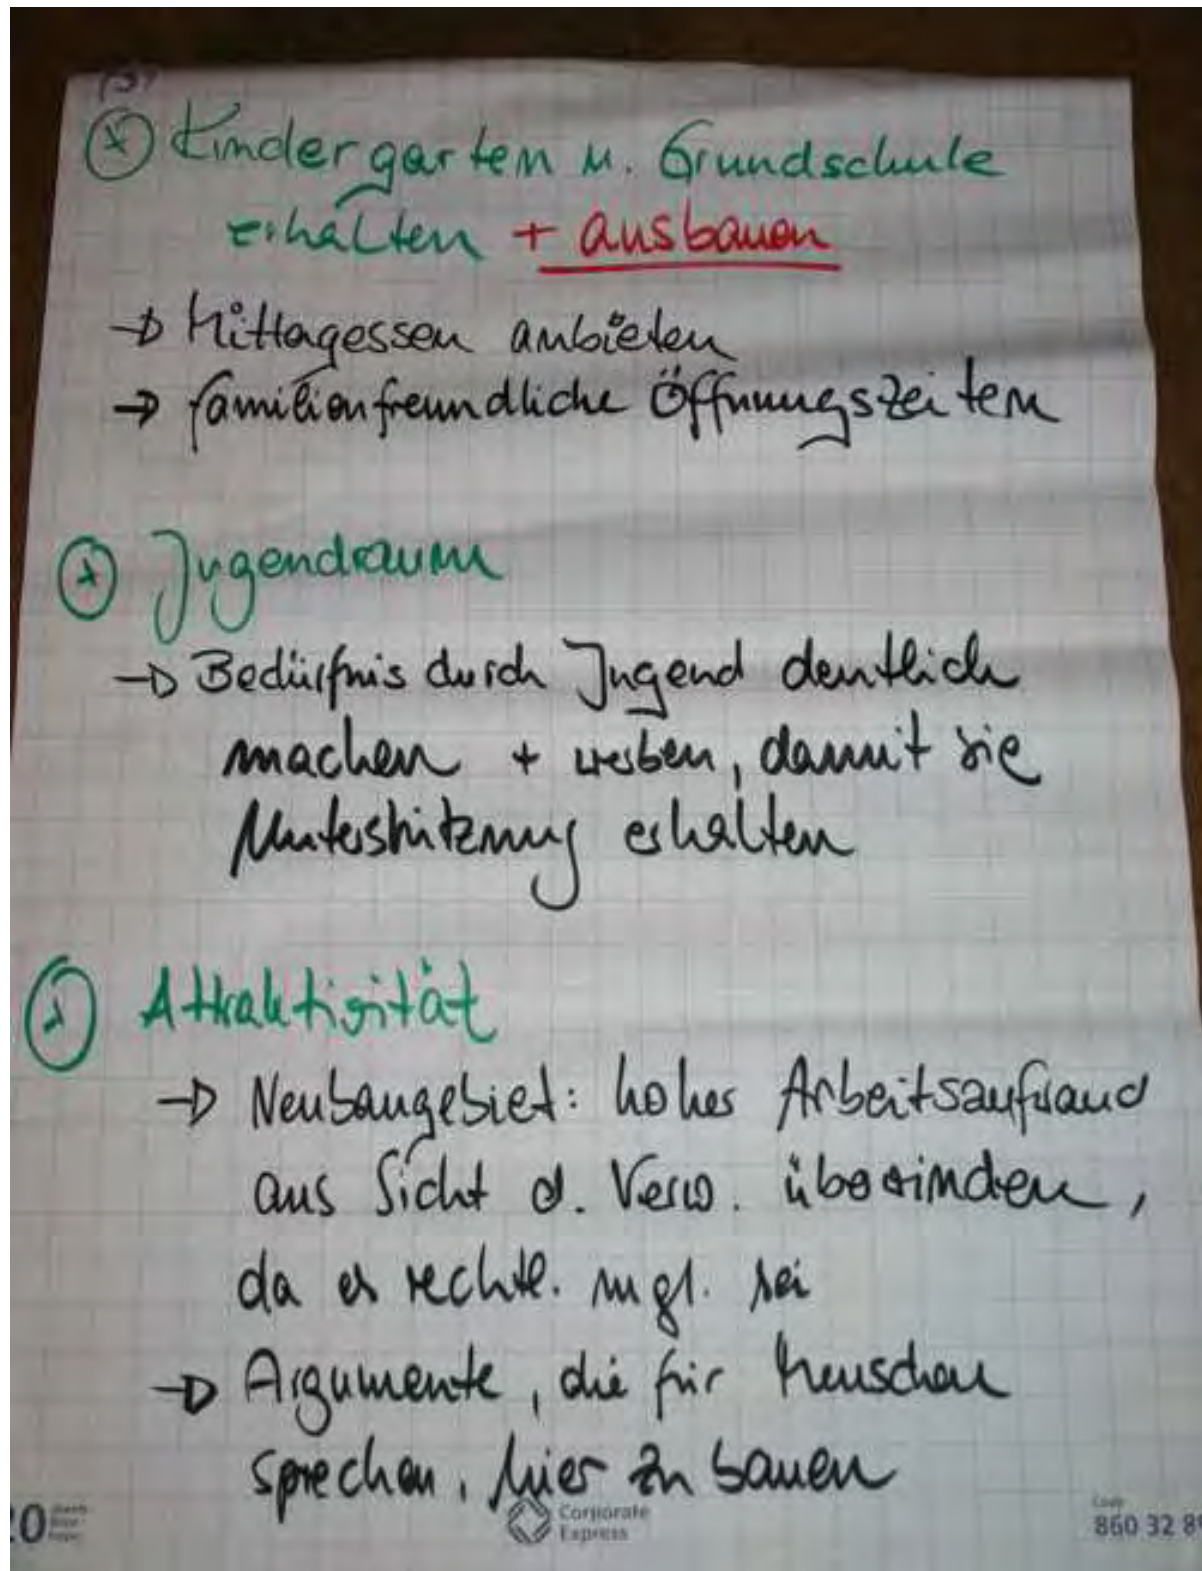 Kindergarten u. Grundschule
erhalten + ausbauen
→ Mittagessen anbieten
→ familienfreundliche Öffnungszeiten
Jugendraum
→ Bedürfnis durch Jugend deutlich
machen + werben, damit sie
Unterstützung erhalten
Attraktivität
→ Neubaugebiet: hoher Arbeitsaufwand
aus Sicht d. Verw. überwinden,
da es rechtl. mgl. sei
→ Argumente, die für Menschen
sprechen, hier zu bauen
Corporate
Express
Code
860 32 8